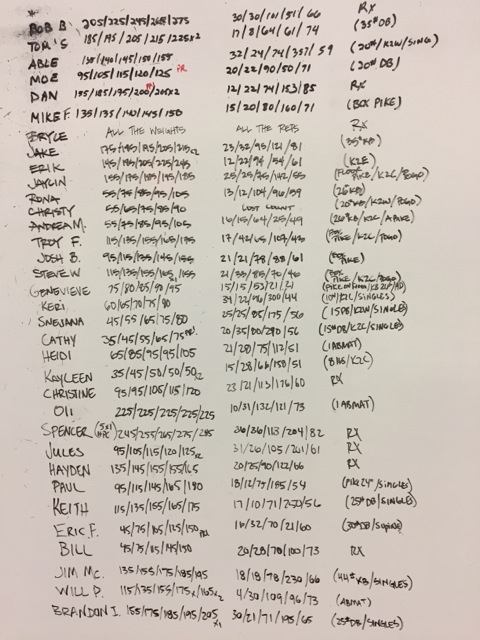 ROB B 205/225/245/265/275 30/30/101/51/66 RX
TOM S 185/195/205/215/225x2 17/8/64/61/74 (35#DB)
ABLE 135/140/145/150/155 32/24/74/357/59 (20#/K2W/SING)
MOE 95/105/115/120/125 PR 20/22/90/50/71 (20#DB)
DAN 155/185/195/200/205x2 12/22/74/153/85 RX
MIKE F. 135/135/140/145/150 15/20/80/160/71 (BOX PIKE)
BRYCE ALL THE WEIGHTS ALL THE REPS RX
JAKE 175/185/195/205/215 23/32/95/121/81 (35#KB)
ERIK 145/185/205/225/245 12/22/94/54/61 (K2E)
JAYLIN 155/175/185/195/185 25/25/75/142/55
RONA 55/75/85/95/105 13/12/104/96/59 (26KB)
CHRISTY 55/65/75/75/90 LOST COUNT (20#KB/K2W/POGO)
ANDREA M. 55/75/85/95/105 16/15/64/25/49
TROY F. 115/135/155/165/175 17/42/65/107/43
JOSH B. 95/115/135/145/155 21/21/78/88/61
STEVE W 115/135/155/165 21/33/85/70/46
GENEVIEVE 75/80/85/90/95 15/15/53/21/21
KERI 60/65/70/75/80 31/22/96/300/44 (10#/K2C/SINGLES)
SNEJANA 45/55/65/75/80 25/25/85/175/56 (15DB/K2W/SINGLES)
CATHY 35/45/55/65/75 20/35/80/290/56 (15#DB/K2C/SINGLES)
HEIDI 65/85/95/95/105 21/28/75/112/51 (1ABMAT)
KAYLEEN 35/45/50/50/50x2 15/28/66/158/51
CHRISTINE 95/95/105/115/120 23/21/113/176/60 RX
Oli 225/225/225/225/225 10/31/132/121/73 (1ABMAT)
SPENCER 245/255/265/275/285 36/36/113/204/82 RX
JULES 95/105/115/120/125 31/26/105/261/61 RX
HAYDEN 135/145/155/155/165 20/25/90/122/66 RX
PAUL 95/115/145/165/180 18/12/75/185/54 (PIKE24"/SINGLES)
KEITH 115/135/155/165/175 17/10/71/250/56 (25#DB/SINGLES)
ERIC F. 45/75/105/125/150 16/32/70/21/60
BILL 45/75/115/145/150 20/28/78/100/73 RX
JIM MC. 135/155/175/185/195 18/18/78/230/66 (44#KB/SINGLES)
WILL P. 115/135/155/175x/165x2 4/30/109/96/73 (ABMAT)
BRANDON I. 155/175/185/195/205x1 30/21/71/195/65 (25#DB/SINGLES)